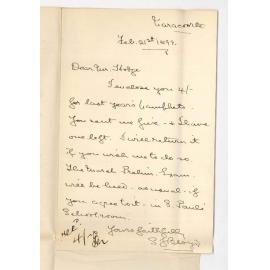 Feb. 21st 1899.
Dear Mr. Hodge
I enclose you 4/-
for last year's Pamphlets.
You sent me five - & I have
one left. I will return it
if you wish me to do so.
The Prelim. Exam.
will be held - as usual - if
you agree to it - in S. Paul's
Schoolroom.
Yours faithfully